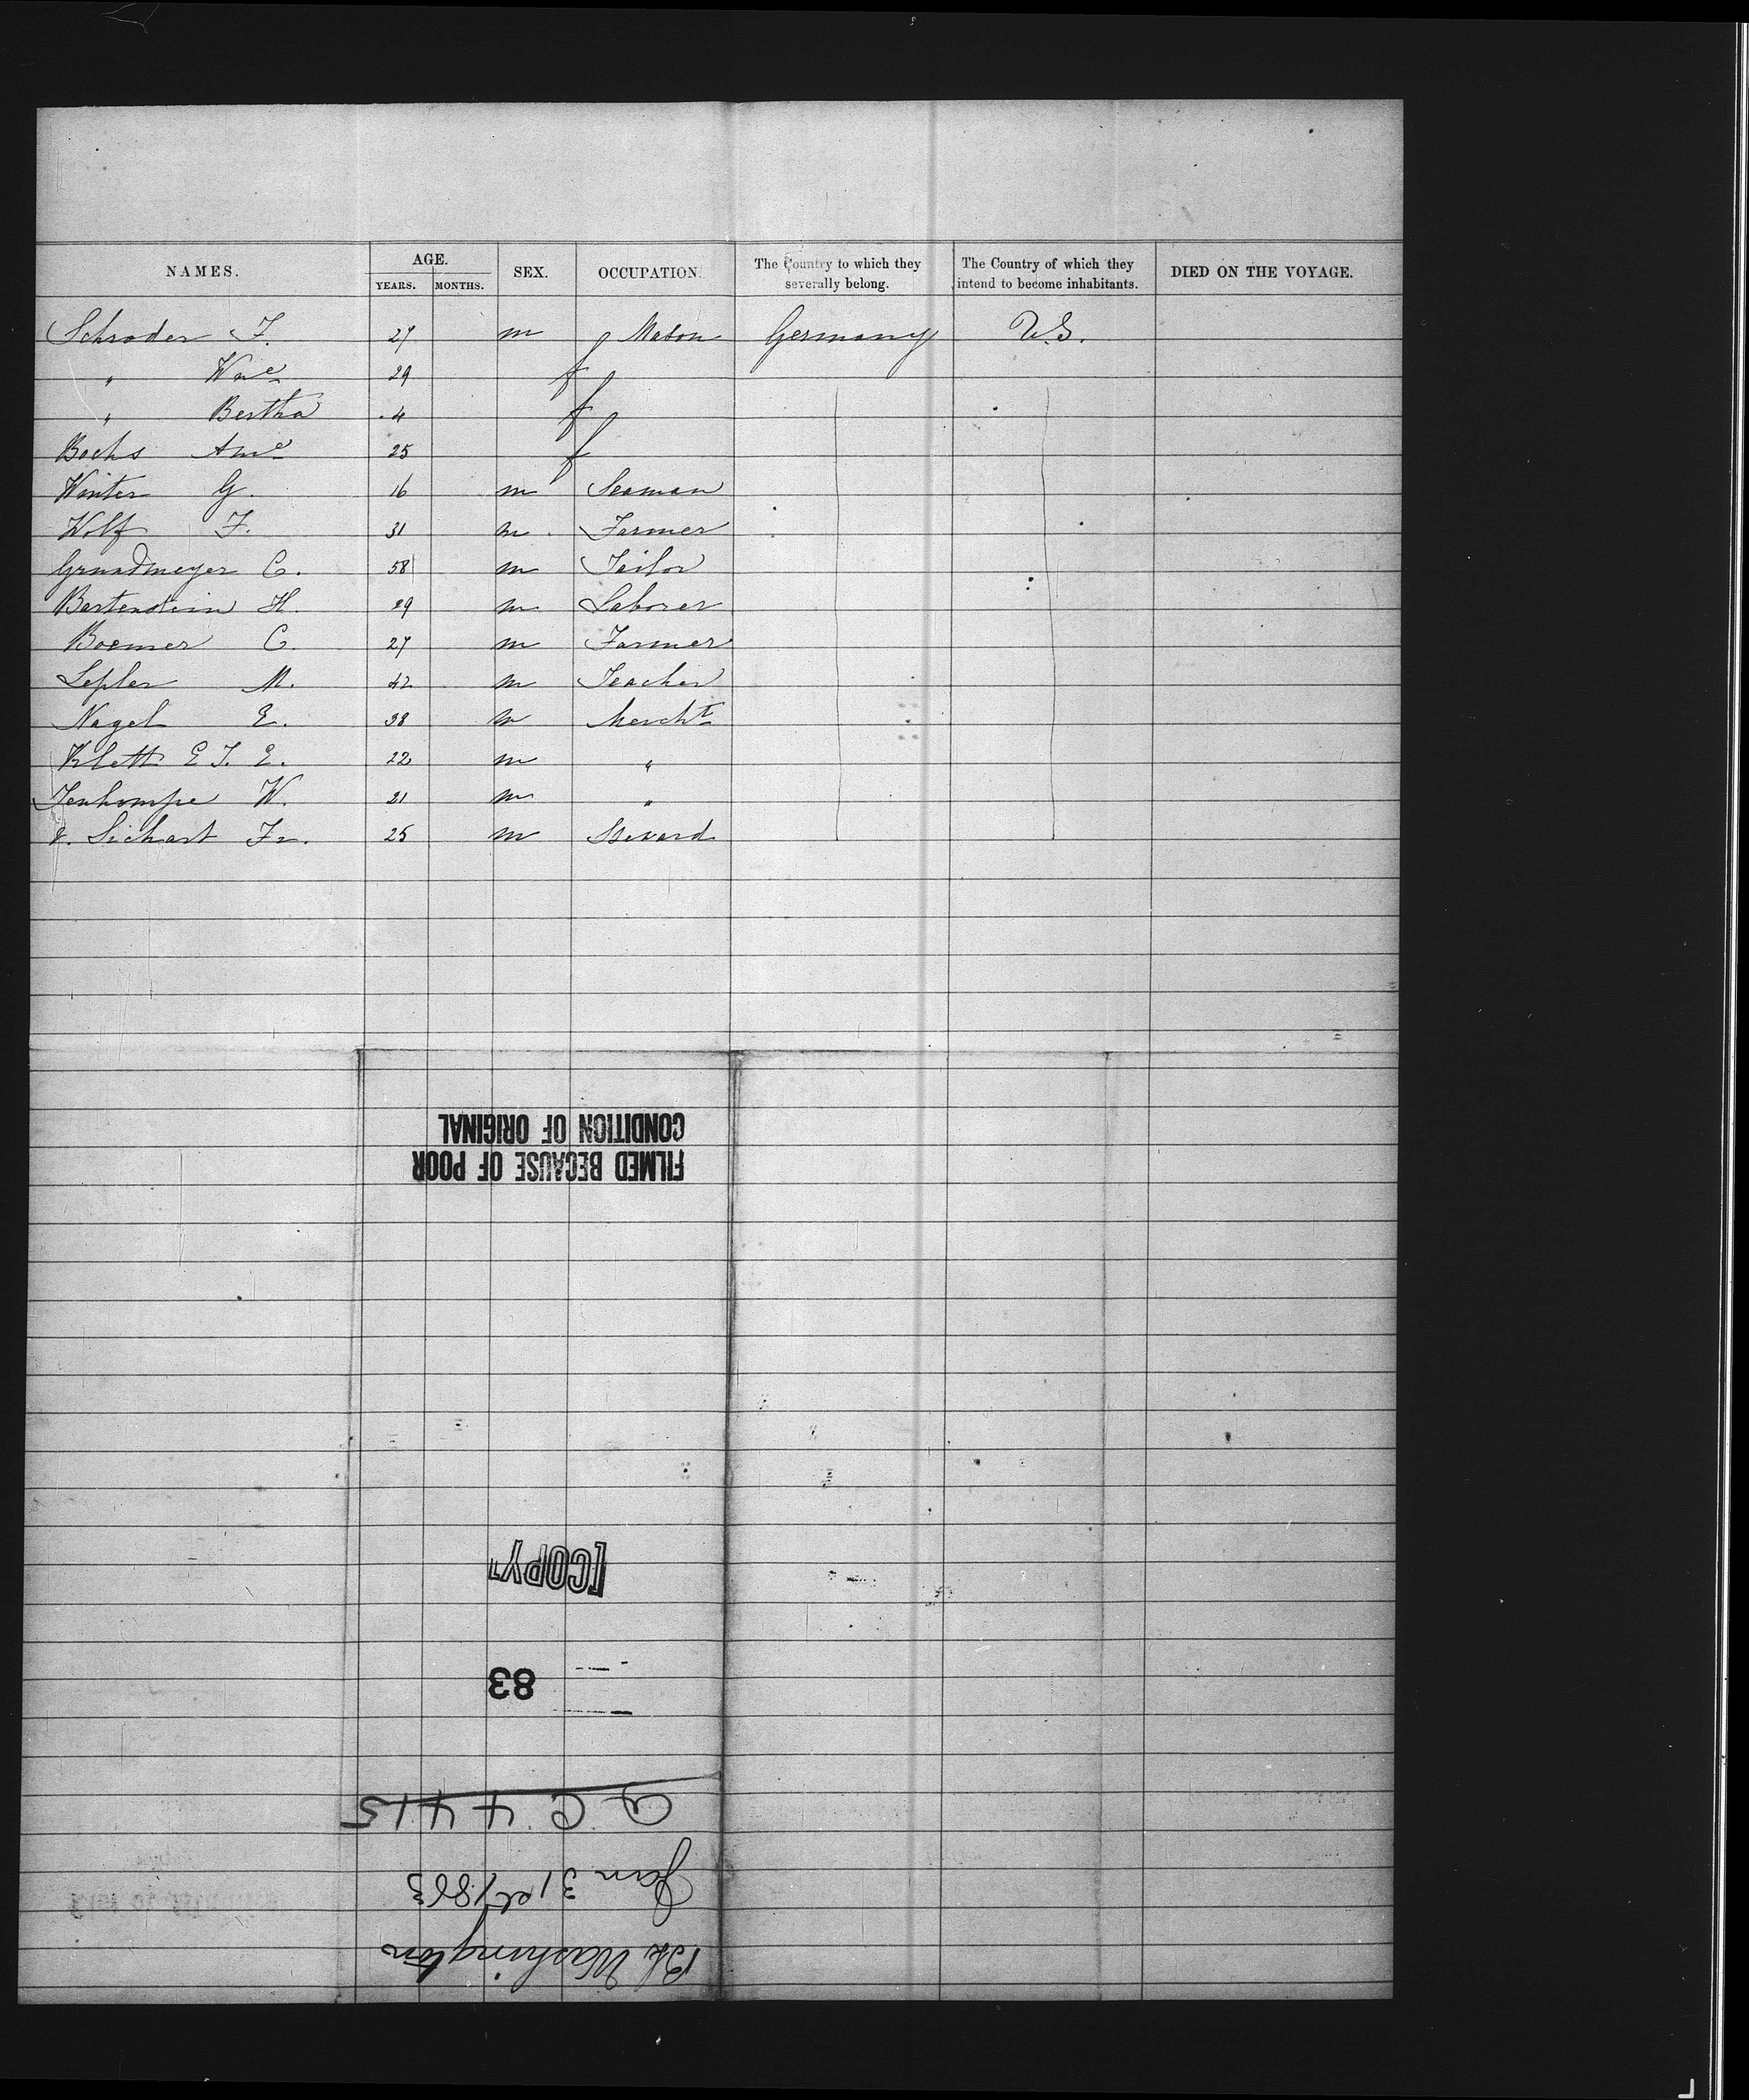 NAMES. AGE. YEARS. MONTHS. SEX. OCCUPATION. The Country to which they severally belong. The Country of which they intend to become inhabitants. DIED ON THE VOYAGE.
Schroder F. 27 m Mason Germany U.S.
" 29 f
" Bertha 4 f
Bochs 25 f
Winter G. 16 m Seaman
Wolf F. 31 m Farmer
Grundmeyer C. 58 m Tailor
Bartenstein H. 29 m Laborer
Boemer C. 27 m Farmer
Lepler M. 42 m Teacher
Nagel E. 38 m Mercht
Klett E J. E. 22 m "
W. 21 m "
v. Sichart Fr. 25 m Steward
FILMED BECAUSE OF POOR
CONDITION OF ORIGINAL
[COPY]
83
Bk Washington
Jan 31st 1863
A C 4415